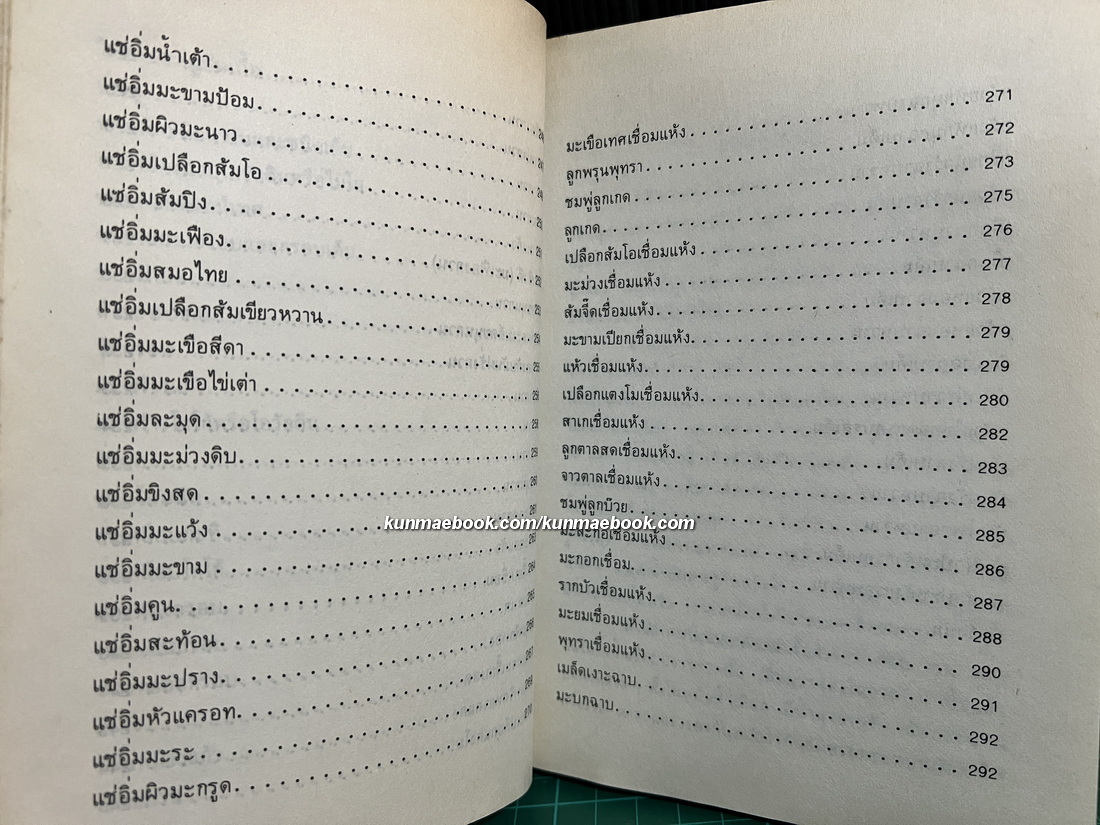 แช่อิ่มน้ำเต้า
แช่อิ่มมะขามป้อม
แช่อิ่มผิวมะนาว
แช่อิ่มเปลือกส้มโอ
แช่อิ่มส้มปิง
แช่อิ่มมะเฟือง
แช่อิ่มสมอไทย
แช่อิ่มเปลือกส้มเขียวหวาน
แช่อิ่มมะเขือสีดา
แช่อิ่มมะเขือไข่เต่า
แช่อิ่มละมุด
แช่อิ่มมะม่วงดิบ
แช่อิ่มขิงสด
แช่อิ่มมะแว้ง
แช่อิ่มมะขาม
แช่อิ่มคูน
แช่อิ่มสะท้อน
แช่อิ่มมะปราง
แช่อิ่มหัวแครอท
แช่อิ่มมะระ
แช่อิ่มผิวมะกรูด
มะเขือเทศเชื่อมแห้ง 271
ลูกพรุนพุทรา 272
ชมพู่ลูกเกด 273
ลูกเกด 275
เปลือกส้มโอเชื่อมแห้ง 276
มะม่วงเชื่อมแห้ง 277
ส้มจี๊ดเชื่อมแห้ง 278
มะขามเปียกเชื่อมแห้ง 279
แห้วเชื่อมแห้ง 279
เปลือกแตงโมเชื่อมแห้ง 280
สาเกเชื่อมแห้ง 282
ลูกตาลสดเชื่อมแห้ง 283
จาวตาลเชื่อมแห้ง 284
ชมพู่ลูกบ๊วย 285
มะละกอเชื่อมแห้ง 286
มะกอกเชื่อม 287
รากบัวเชื่อมแห้ง 288
มะยมเชื่อมแห้ง 290
พุทราเชื่อมแห้ง 291
เมล็ดเงาะฉาบ 292
มะบกฉาบ 292
kunmaebook.com/kunmaebook.com